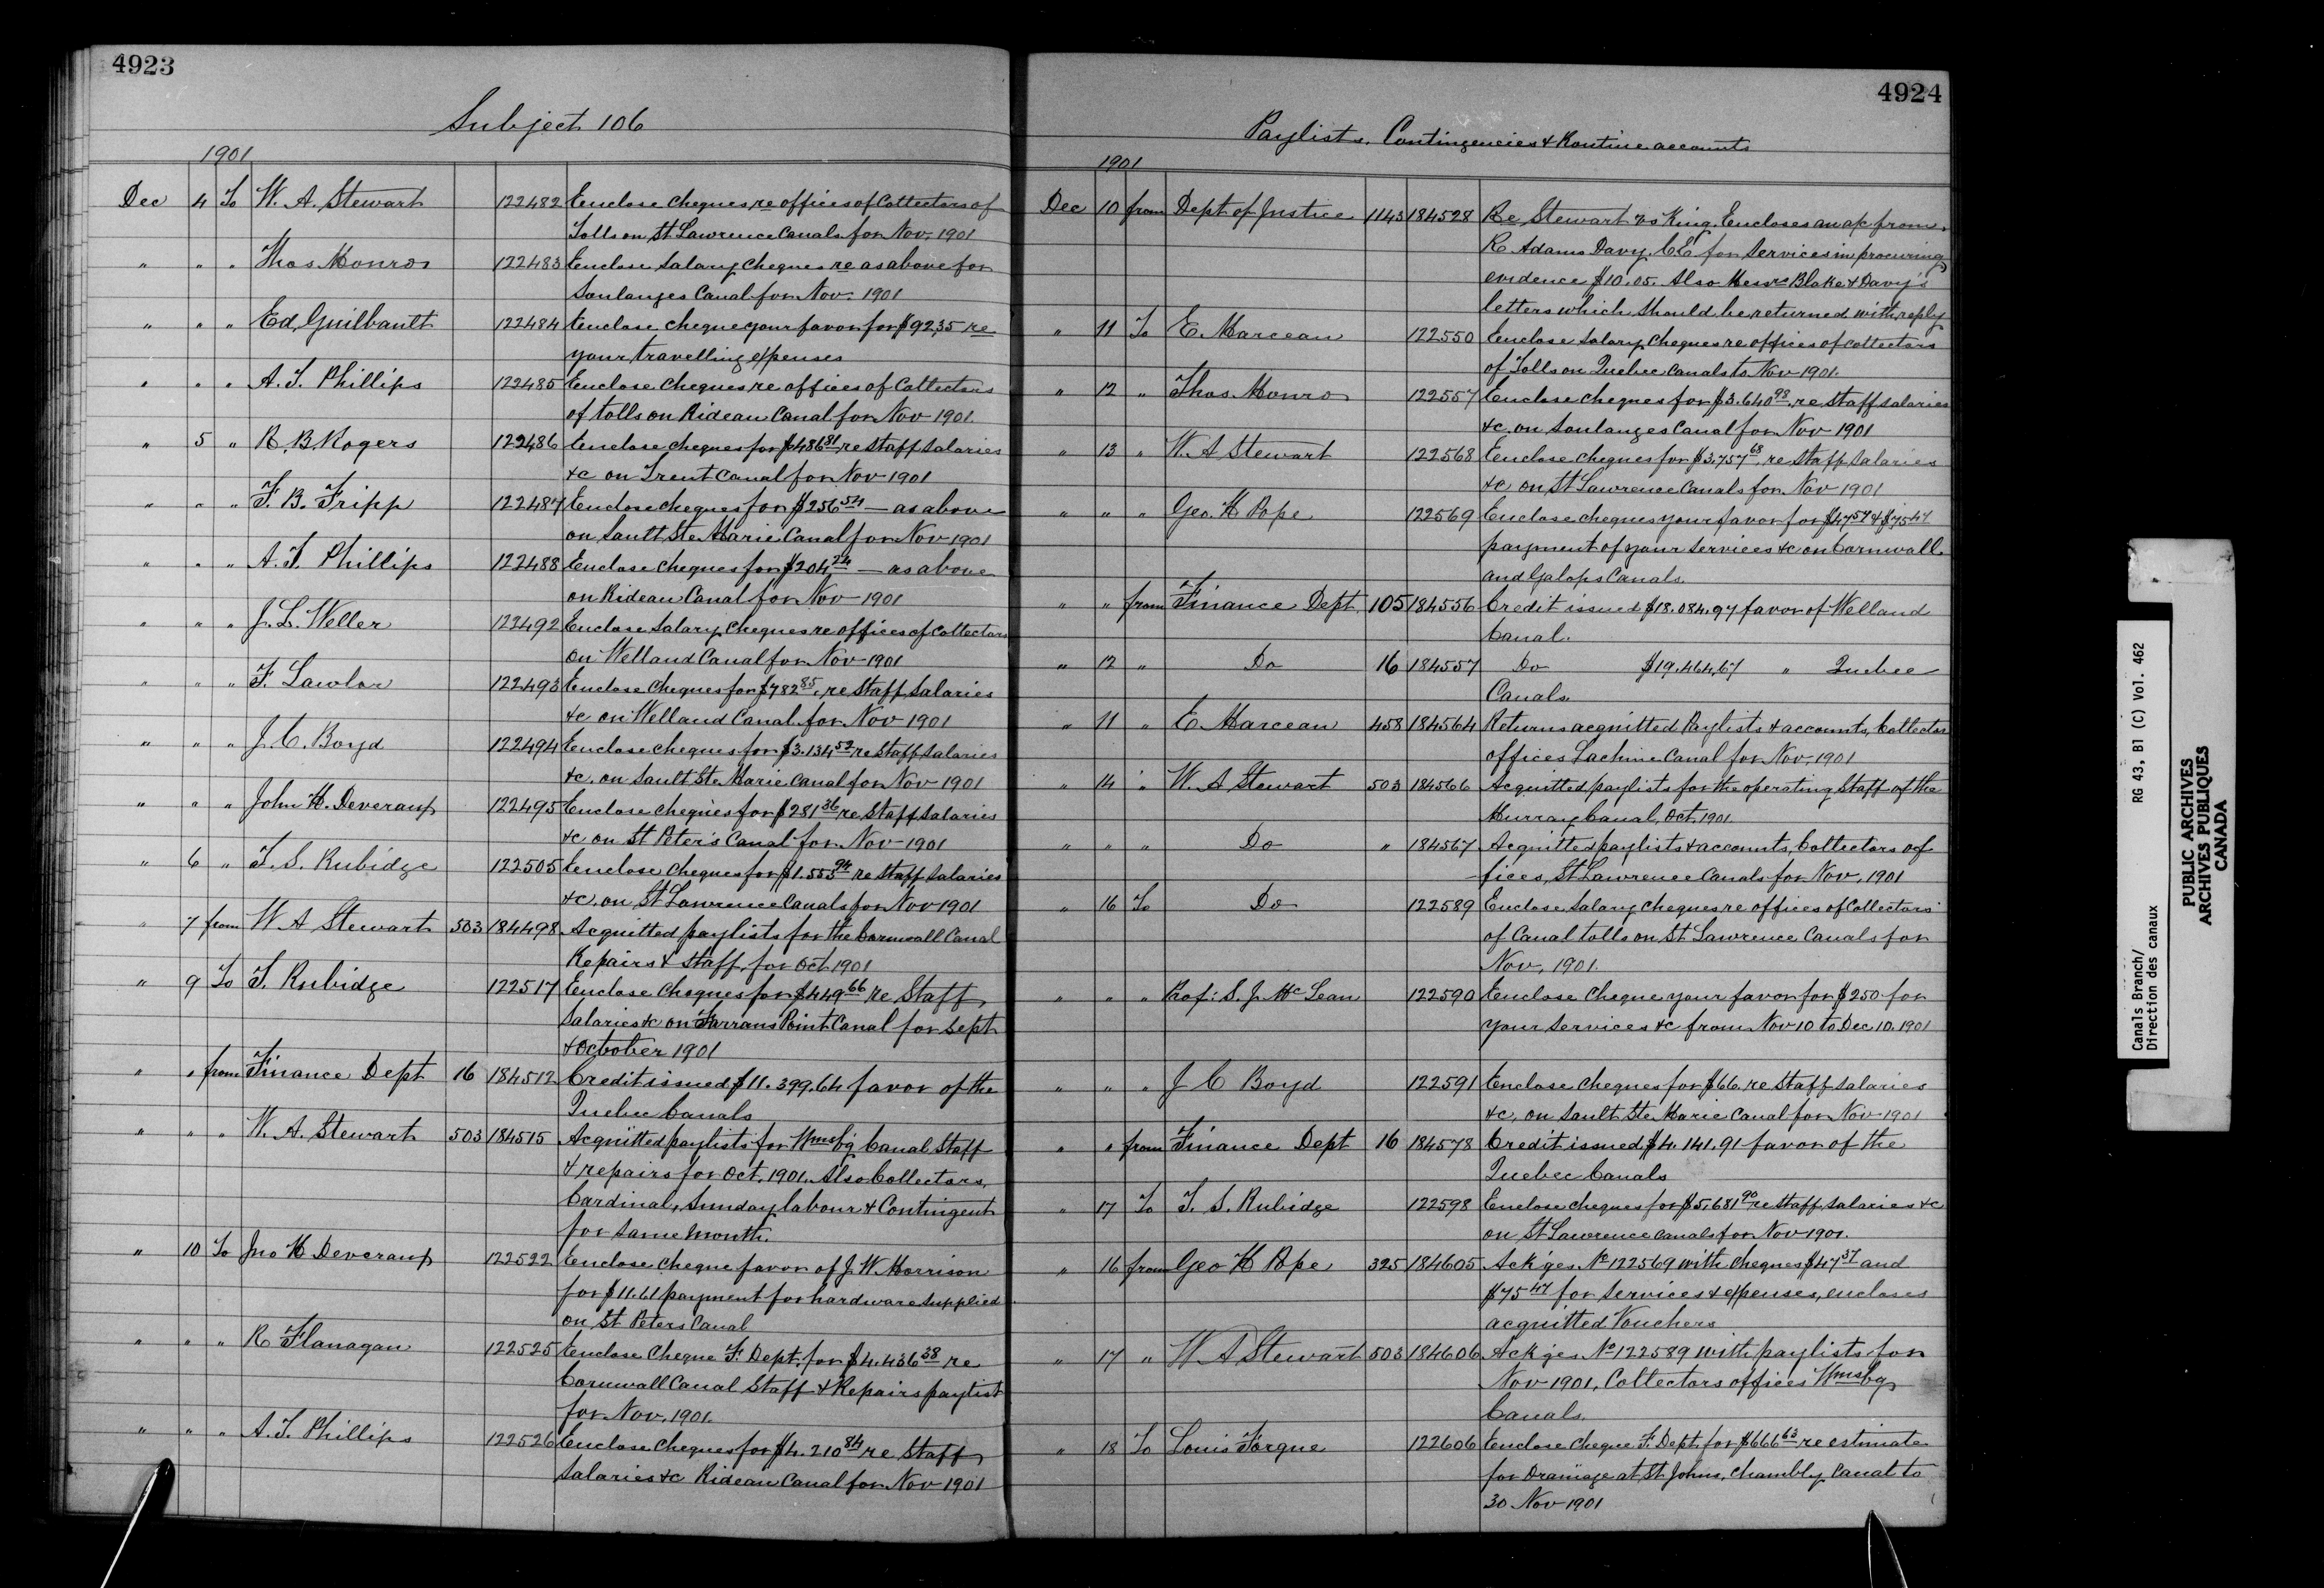 4923
Subject 106
1901
Dec 4 To W. A. Stewart 122482 Enclose cheques re offices of Collectors of
Tolls on St Lawrence Canals for Nov. 1901
" " " Thos Monro 122483 Enclose salary cheques re as above for
Soulanges Canal for Nov. 1901
" " " Ed. Guilbault 122484 Enclose cheque your favor for $92.35 re
your travelling expenses
" " " A. T. Phillips 122485 Enclose cheques re offices of Collectors
of tolls on Rideau Canal for Nov 1901.
" 5 " R. B. Rogers 122486 Enclose cheques for $486 81 re staff salaries
&c on Trent Canal for Nov 1901
" " " F. B. Fripp 122487 Enclose cheques for $256 54 — as above
on Sault Ste Marie Canal for Nov 1901
" " " A. T. Phillips 122488 Enclose cheques for $204 24 — as above
on Rideau Canal for Nov 1901
" " " J. L. Weller 122492 Enclose salary cheques re offices of Collectors
on Welland Canal for Nov 1901
" " " F. Lawlor 122493 Enclose cheques for $782 85, re staff salaries
&c on Welland Canal for Nov 1901
" " " J. C. Boyd 122494 Enclose cheques for $3.134 52 re staff salaries
&c. on Sault Ste Marie Canal for Nov 1901
" " " John H. Deveraux 122495 Enclose cheques for $281 36 re staff salaries
&c on St Peter's Canal for Nov 1901
" 6 " T. S. Rubidge 122505 Enclose cheques for $1.553 94 re staff salaries
&c. on St Lawrence Canals for Nov 1901
" 7 from W A Stewart 503 184498 Acquitted paylists for the Cornwall Canal
Repairs & Staff, for Oct 1901
" 9 To T. Rubidge 122517 Enclose cheques for $449 66 re Staff
Salaries &c on Farrans Point Canal for Sept
& October 1901
" " from Finance Dept 16 184512 Credit issued $11.399.64 favor of the
Quebec Canals
" " " W. A. Stewart 503 184515 Acquitted paylists for Wmsbg Canal Staff
& repairs for Oct. 1901. Also Collectors,
Cardinal, Sunday labour & Contingent
for same month.
" 10 To Jno H Deveraux 122522 Enclose cheque favor of J. W. Morrison
for $11.61 payment for hardware supplied
on St Peters Canal
" " " R Flanagan 122525 Enclose cheque F. Dept. for $4.436 38 re
Cornwall Canal Staff & Repairs paylist
for Nov. 1901.
" " " A. T. Phillips 122526 Enclose cheques for $4.210 84 re Staff
Salaries &c Rideau Canal for Nov 1901
4924
Paylists, Contingencies & Routine accounts
1901
Dec 10 from Dept of Justice 1143 184528 Re Stewart vs King. Encloses an a/c from
R Adams Davy, C.E. for services in procuring
evidence $10.05. Also Messrs Blake & Davy's
letters which should be returned with reply
" 11 To E. Marceau 122550 Enclose salary cheques re offices of Collectors
of Tolls on Quebec Canals to Nov 1901.
" 12 " Thos. Monro 122557 Enclose cheques for $3.640 98. re staff salaries
&c. on Soulanges Canal for Nov 1901
" 13 " W. A Stewart 122568 Enclose cheques for $3.757 68. re staff salaries
&c on St Lawrence Canals for Nov 1901
" " " Geo. H Pope 122569 Enclose cheques your favor for $47 57 & $75 47
payment of your services &c on Cornwall
and Galops Canals.
" " from Finance Dept. 105 184556 Credit issued $18.084.97 favor of Welland
Canal.
" 12 " Do 16 184557 Do $19.464.67 " Quebec
Canals
" 11 " E. Marceau 458 184564 Returns acquitted Paylists & accounts, Collector
offices Lachine Canal for Nov. 1901
" 14 " W. A Stewart 503 184566 Acquitted paylists for the operating Staff of the
Murray Canal, Oct. 1901.
" " " Do " 184567 Acquitted paylists & accounts, Collectors of
fices, St Lawrence Canals for Nov. 1901
" 16 To Do 122589 Enclose salary cheques re offices of Collectors
of Canal tolls on St Lawrence Canals for
Nov, 1901.
" " " Prof: S. J. McLean 122590 Enclose cheque your favor for $250 for
your services &c from Nov 10 to Dec 10. 1901
" " " J C Boyd 122591 Enclose cheques for $66. re staff salaries
&c, on Sault Ste Marie Canal for Nov 1901
" " from Finance Dept 16 184578 Credit issued $4.141.91 favor of the
Quebec Canals
" 17 To T. S. Rubidge 122598 Enclose cheques for $5.681 90 re staff salaries &c
on St Lawrence Canals for Nov 1901.
" 16 from Geo H Pope 325 184605 Ack'ges No 122569 with cheques $47 57 and
$75 47 for services & expenses, encloses
acquitted Vouchers
" 17 " W A Stewart 503 184606 Ack'ges No 122589 with paylists for
Nov 1901, Collectors offices Wmsbg
Canals.
" 18 To Louis Forgue 122606 Enclose cheque F. Dept. for $666 63 re estimate
for Drainage at St Johns, Chambly Canal to
30 Nov 1901
Canals Branch/ RG 43, B1 (C) Vol. 462
Direction des canaux
PUBLIC ARCHIVES
ARCHIVES PUBLIQUES
CANADA